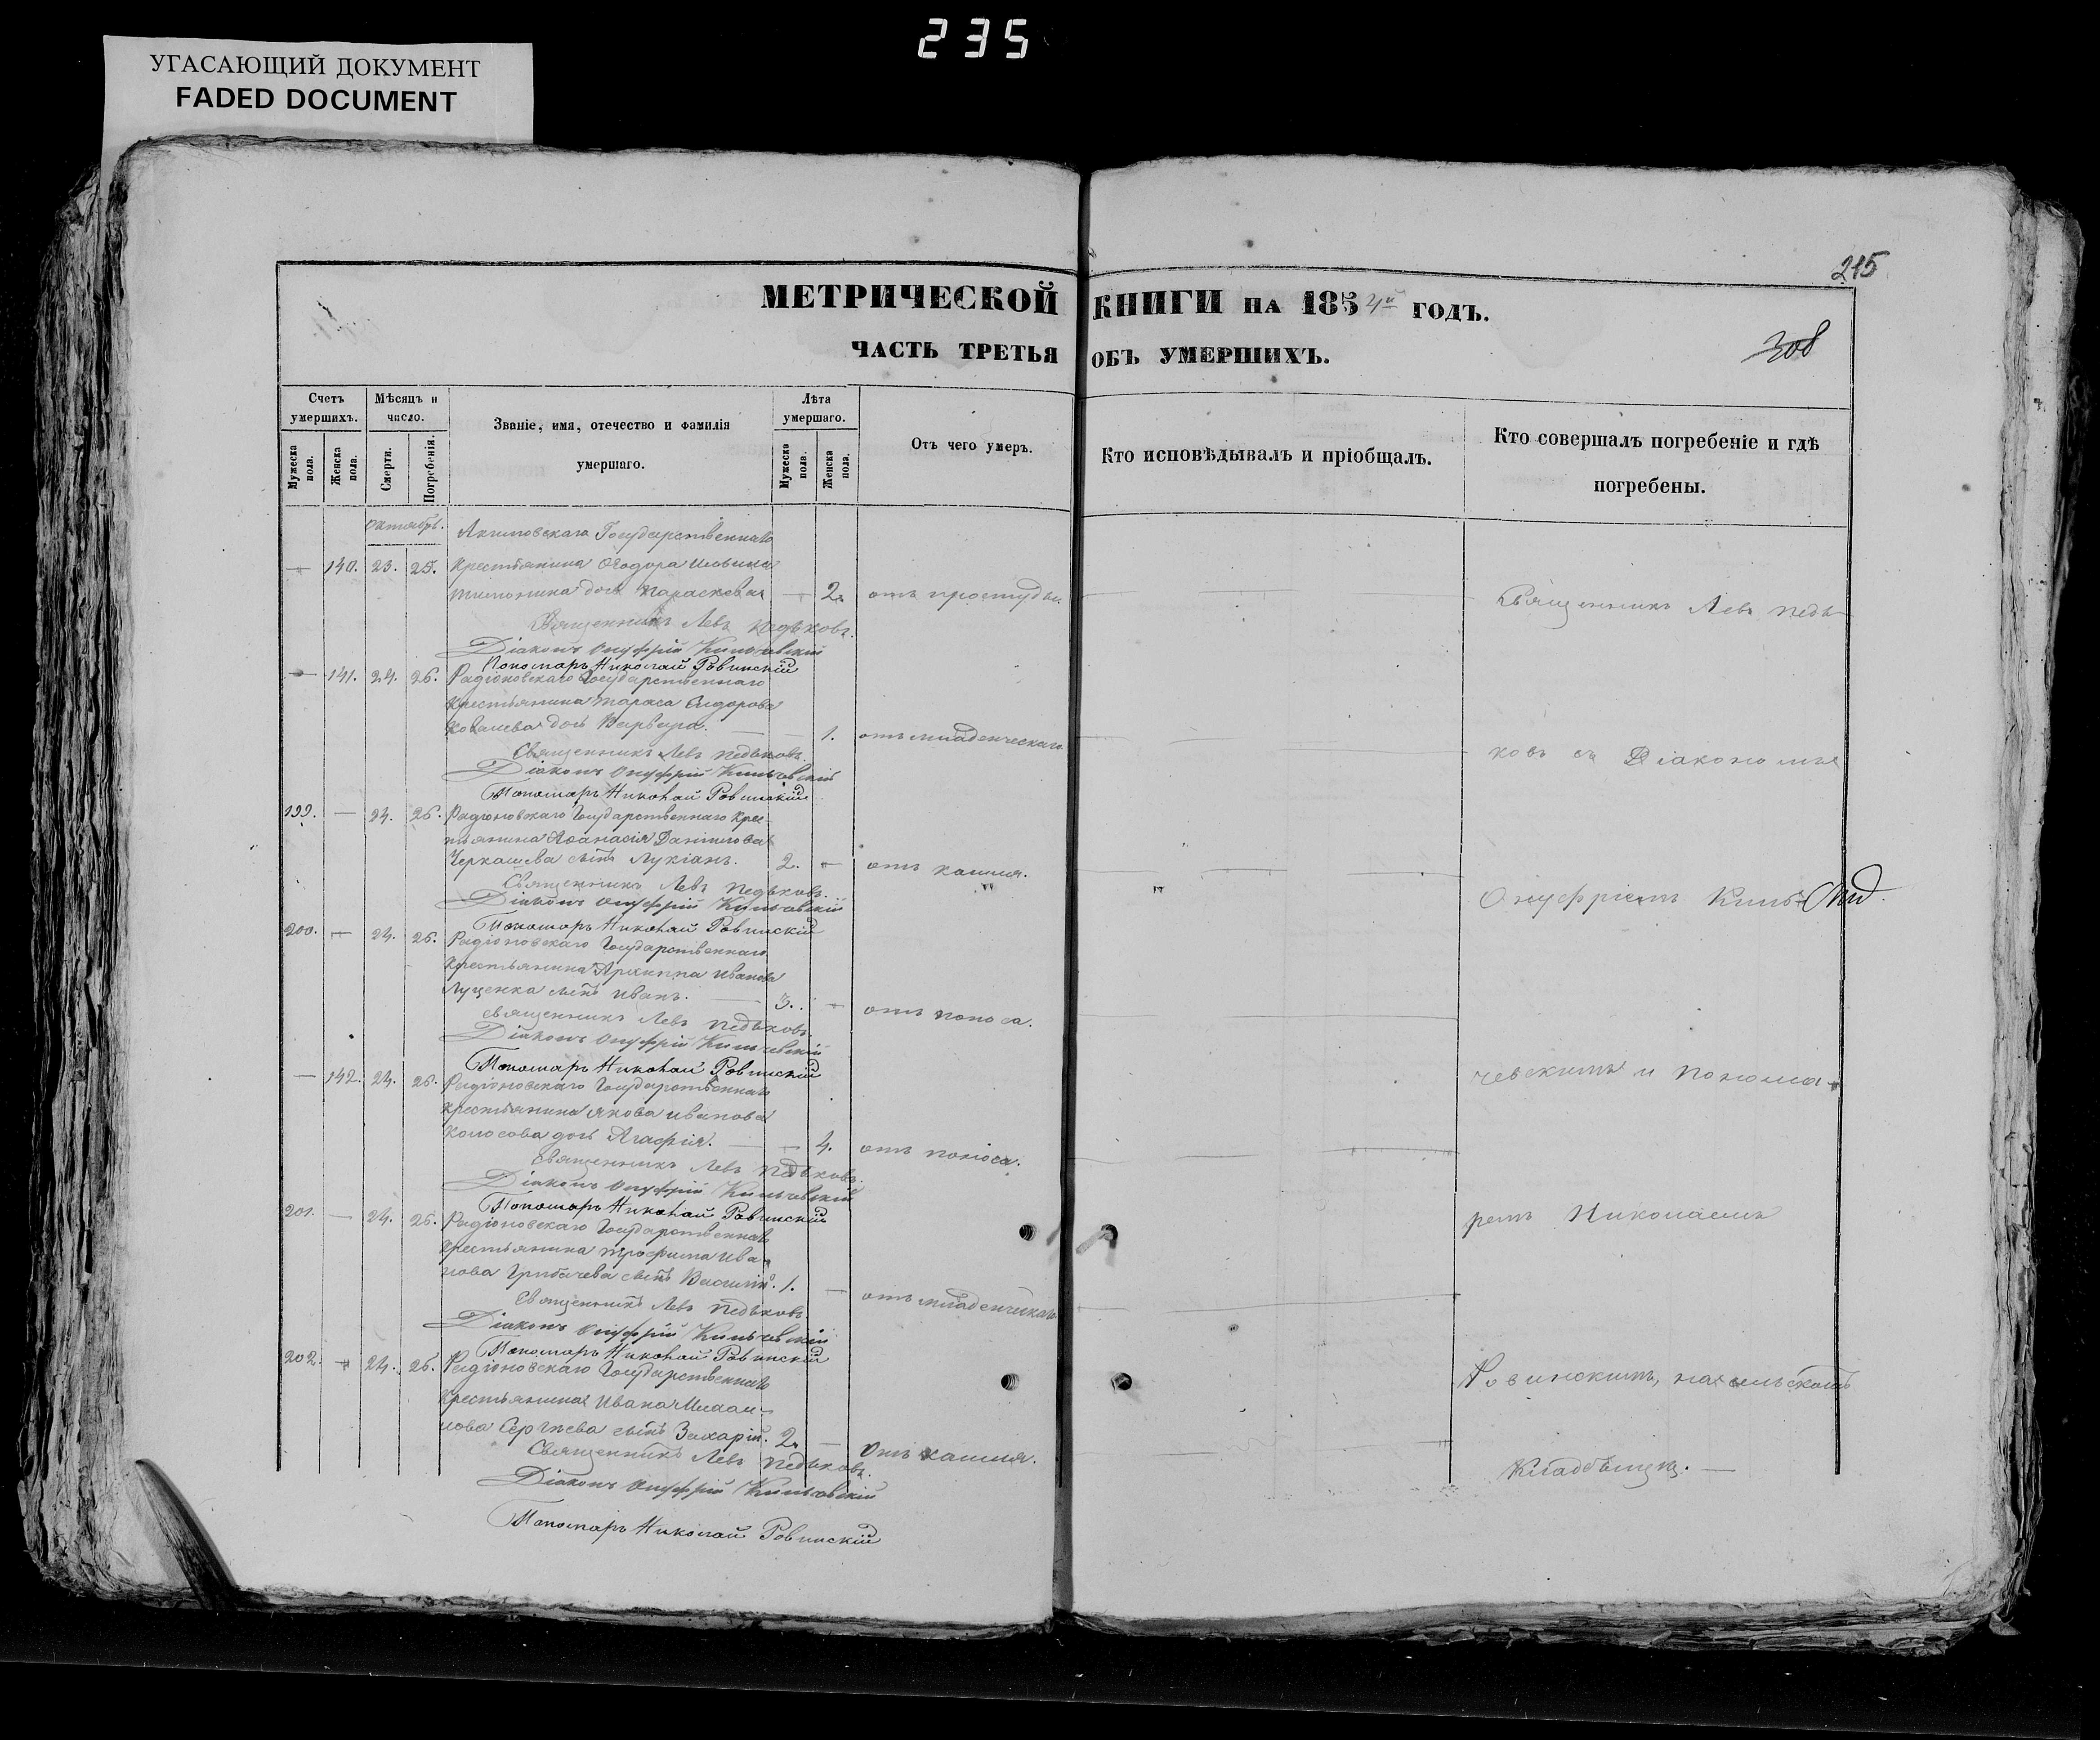 235
УГАСАЮЩИЙ ДОКУМЕНТ
FADED DOCUMENT
215
МЕТРИЧЕСКОЙ КНИГИ НА 1854й ГОДЪ.
ЧАСТЬ ТРЕТЬЯ ОБЪ УМЕРШИХЪ.
308
Счетъ умершихъ.
Мужеска пола.
Женска пола.
Мѣсяцъ и число.
Смерти.
Погребенія.
Званіе, имя, отечество и фамилія умершаго.
Лѣта умершаго.
Мужеска пола.
Женска пола.
Отъ чего умеръ.
Кто исповѣдывалъ и пріобщалъ.
Кто совершалъ погребеніе и гдѣ погребены.
октябрь.
Акимовскаго Государственнаго
— 140. 23. 25. крестьянина Ѳеодора Ильина
дочь Параскевия — 2. отъ простуды
Священникъ Левъ Педьковъ.
Діаконъ Онуфрій Кильчевскій
Пономарь Николай Ровинскій
— 141. 24. 26. Радіоновскаго Государственнаго
крестьянина Тараса Сидорова
Ковалева дочь Варвара. — 1. отъ младенческаго
Священникъ Левъ Педьковъ.
Діаконъ Онуфрій Кильчевскій
Пономарь Николай Ровинскій
199. — 24. 26. Радіоновскаго Государственнаго крес-
тьянина Аѳанасія Даніилова
Черкашева сынъ Лукіанъ. 2. — отъ кашля.
Священникъ Левъ Педьковъ.
Діаконъ Онуфрій Кильчевскій
Пономарь Николай Ровинскій
200. — 24. 26. Радіоновскаго Государственнаго
крестьянина Архиппа Иванова
Луценка сынъ Иванъ. — 3. — отъ поноса.
Священникъ Левъ Педьковъ.
Діаконъ Онуфрій Кильчевскій
Пономарь Николай Ровинскій
— 142. 24. 26. Радіоновскаго Государственнаго
крестьянина Якова Иванова
Колосова дочь Агафія. — 4. отъ поноса.
Священникъ Левъ Педьковъ.
Діаконъ Онуфрій Кильчевскій
Пономарь Николай Ровинскій
201. — 24. 26. Радіоновскаго Государственнаго
крестьянина Трофима Ива-
нова Грибачева сынъ Василій. 1. — отъ младенческаго
Священникъ Левъ Педьковъ.
Діаконъ Онуфрій Кильчевскій
Пономарь Николай Ровинскій
202. — 24. 26. Радіоновскаго Государственнаго
крестьянина Ивана Михаи-
лова Сергѣева сынъ Захарій. 2. — отъ кашля.
Священникъ Левъ Педьковъ.
Діаконъ Онуфрій Кильчевскій
Пономарь Николай Ровинскій
Священникъ Левъ Педь-
ковъ съ Діакономъ
Онуфріемъ Киль-
чевскимъ и Понома-
ремъ Николаемъ
Ровинскимъ, на сельскомъ
Кладбищѣ. —